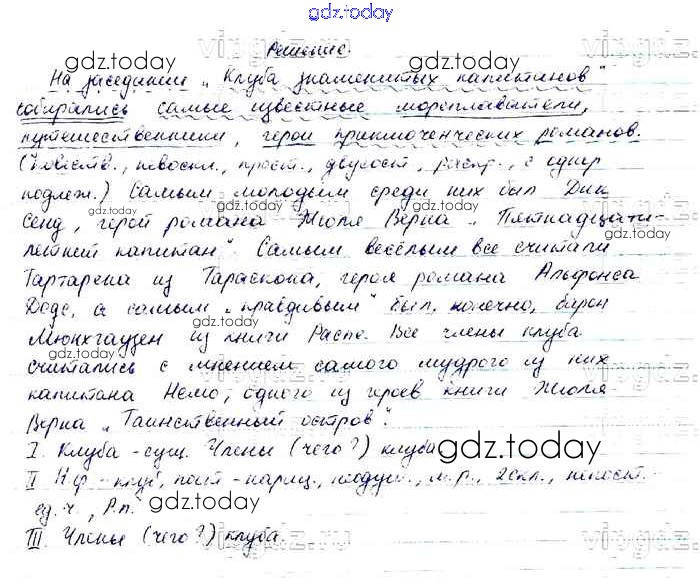 gdz.today
Решение.
gdz.today
vingdz.ru
На заседании „Клуба знаменитых капитанов"
собирались самые известные мореплаватели,
путешественники, герои приключенческих романов.
(Повеств., невоскл., прост., двусост., распр., с однор
подлеж.) Самым молодым среди них был Дик
gdz.today
Сенд, герой романа Жюля Верна „Пятнадцати-
летний капитан". Самым весёлым все считали
gdz.today
Тартарена из Тараскона, героя романа Альфонса
Доде, а самым „правдивым" был, конечно, барон
gdz.today
Мюнхгаузен из книги Распе. Все члены клуба
считались с мнением самого мудрого из них
капитана Немо, одного из героев книги Жюля
Верна „Таинственный остров".
I. Клуба - сущ. Члены (чего?) клуба
gdz.today
II Н.ф - клуб, пост - нариц., неодуш., м.р., 2скл., непост. -
gdz.today
ед.ч., Р.п.
III. Члены (чего?) клуба.
vingdz.ru
gdz.today